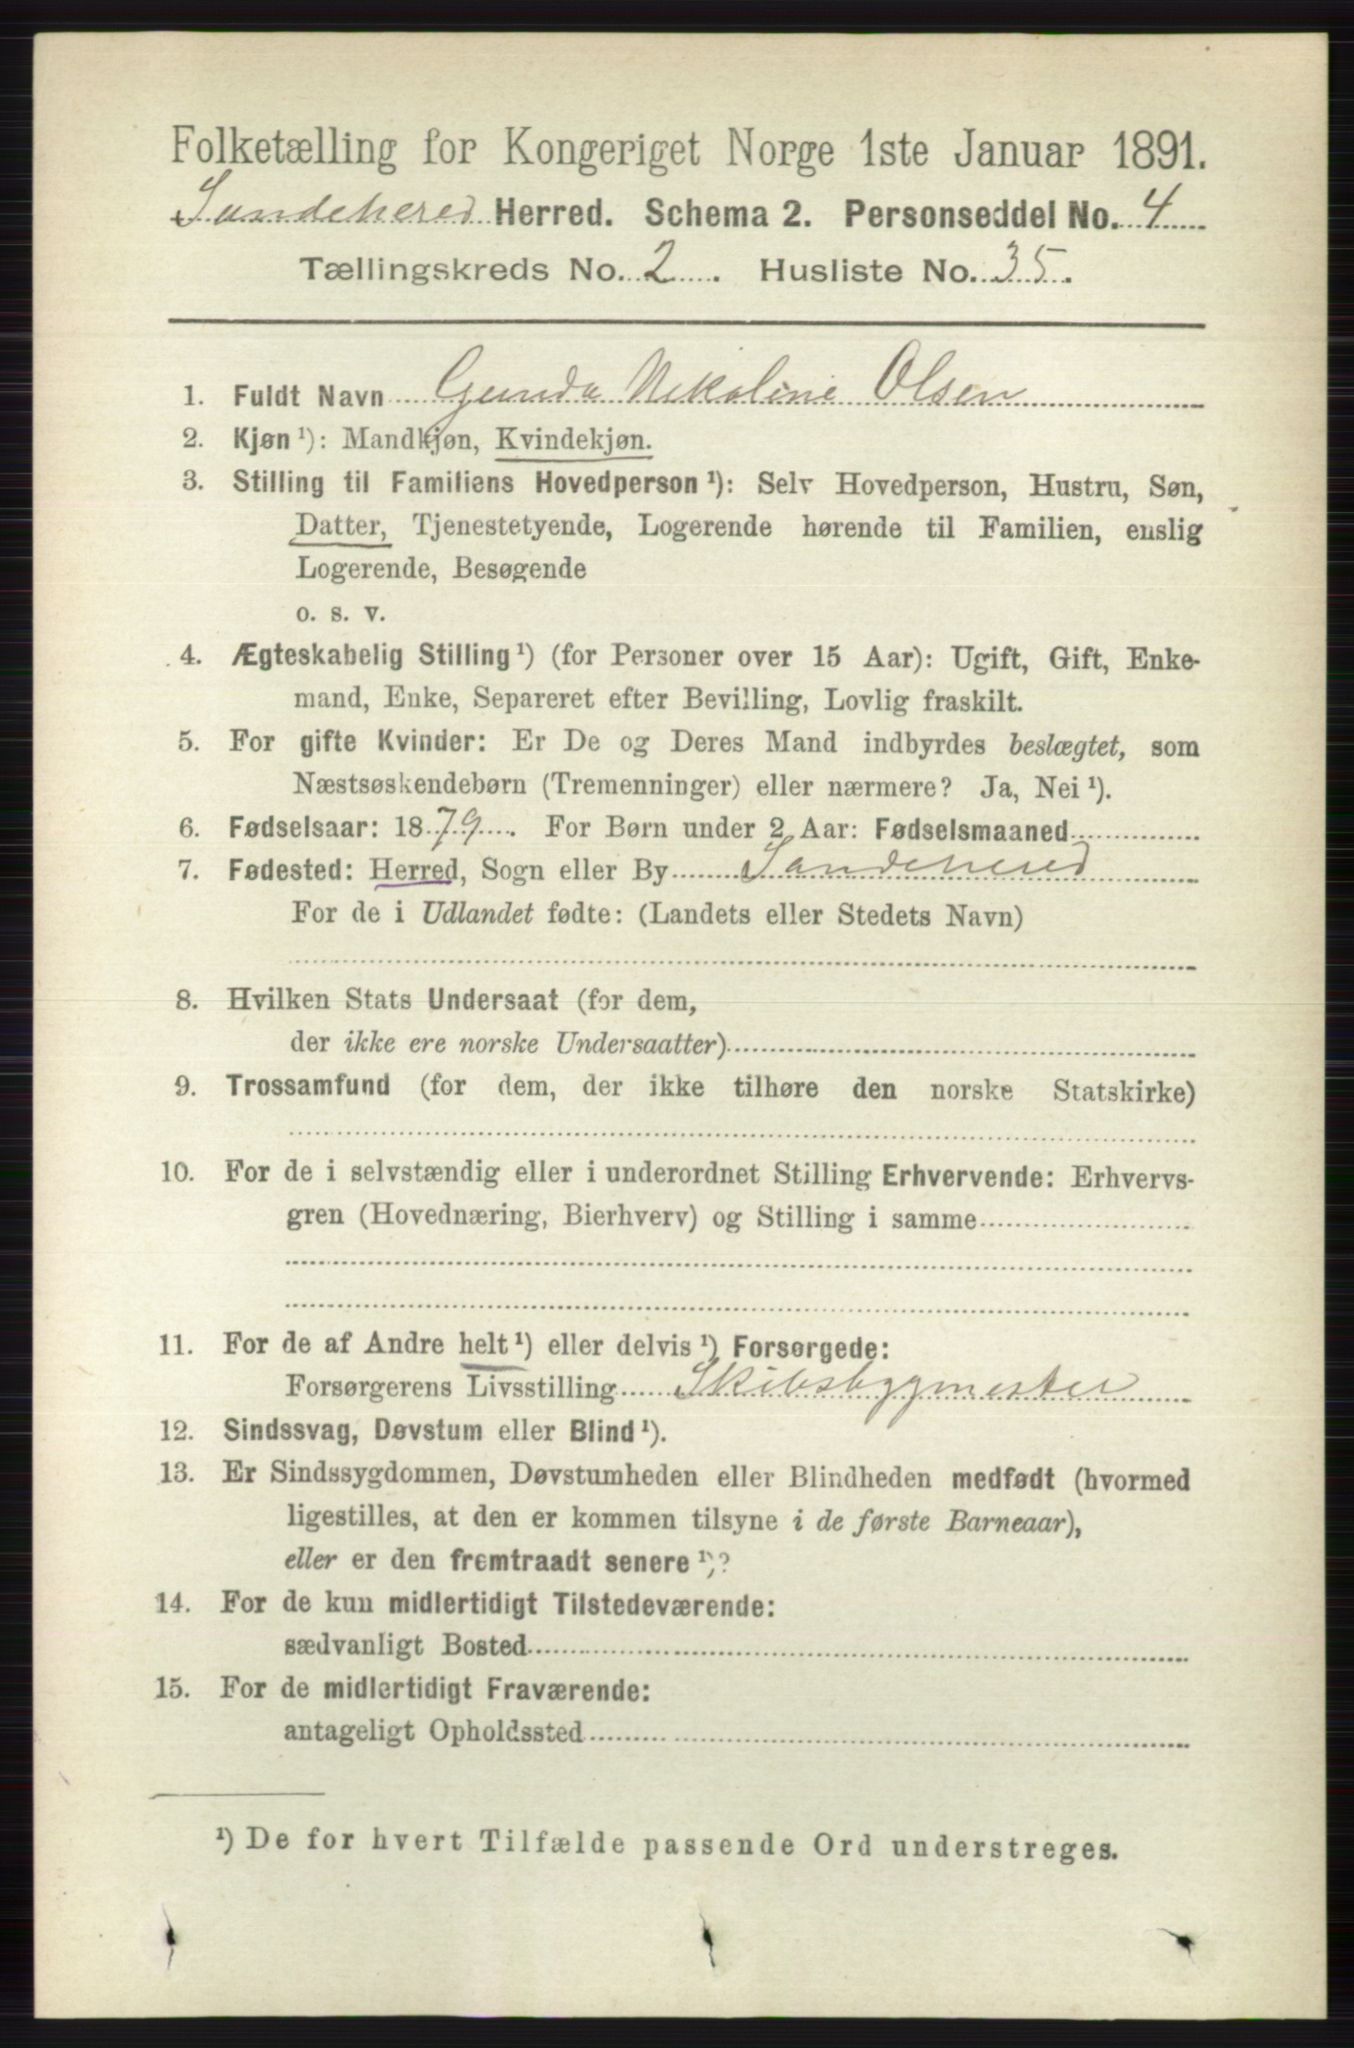 Folketælling for Kongeriget Norge 1ste Januar 1891.
Sandehered Herred. Schema 2. Personseddel No. 4
Tællingskreds No. 2. Husliste No. 35.
1. Fuldt Navn Gunda Nikoline Olsen
2. Kjøn ¹): Mandkjøn, Kvindekjøn.
3. Stilling til Familiens Hovedperson ¹): Selv Hovedperson, Hustru, Søn,
Datter, Tjenestetyende, Logerende hørende til Familien, enslig
Logerende, Besøgende
o. s. v.
4. Ægteskabelig Stilling ¹) (for Personer over 15 Aar): Ugift, Gift, Enke-
mand, Enke, Separeret efter Bevilling, Lovlig fraskilt.
5. For gifte Kvinder: Er De og Deres Mand indbyrdes beslægtet, som
Næstsøskendebørn (Tremenninger) eller nærmere? Ja, Nei ¹).
6. Fødselsaar: 1879. For Børn under 2 Aar: Fødselsmaaned
7. Fødested: Herred, Sogn eller By Sandehered
For de i Udlandet fødte: (Landets eller Stedets Navn)
8. Hvilken Stats Undersaat (for dem,
der ikke ere norske Undersaatter)
9. Trossamfund (for dem, der ikke tilhøre den norske Statskirke)
10. For de i selvstændig eller i underordnet Stilling Erhvervende: Erhvervs-
gren (Hovednæring, Bierhverv) og Stilling i samme
11. For de af Andre helt ¹) eller delvis ¹) Forsørgede:
Forsørgerens Livsstilling Skibsbygmester
12. Sindssvag, Døvstum eller Blind ¹).
13. Er Sindssygdommen, Døvstumheden eller Blindheden medfødt (hvormed
ligestilles, at den er kommen tilsyne i de første Barneaar),
eller er den fremtraadt senere ¹)?
14. For de kun midlertidigt Tilstedeværende:
sædvanligt Bosted
15. For de midlertidigt Fraværende:
antageligt Opholdssted
¹) De for hvert Tilfælde passende Ord understreges.